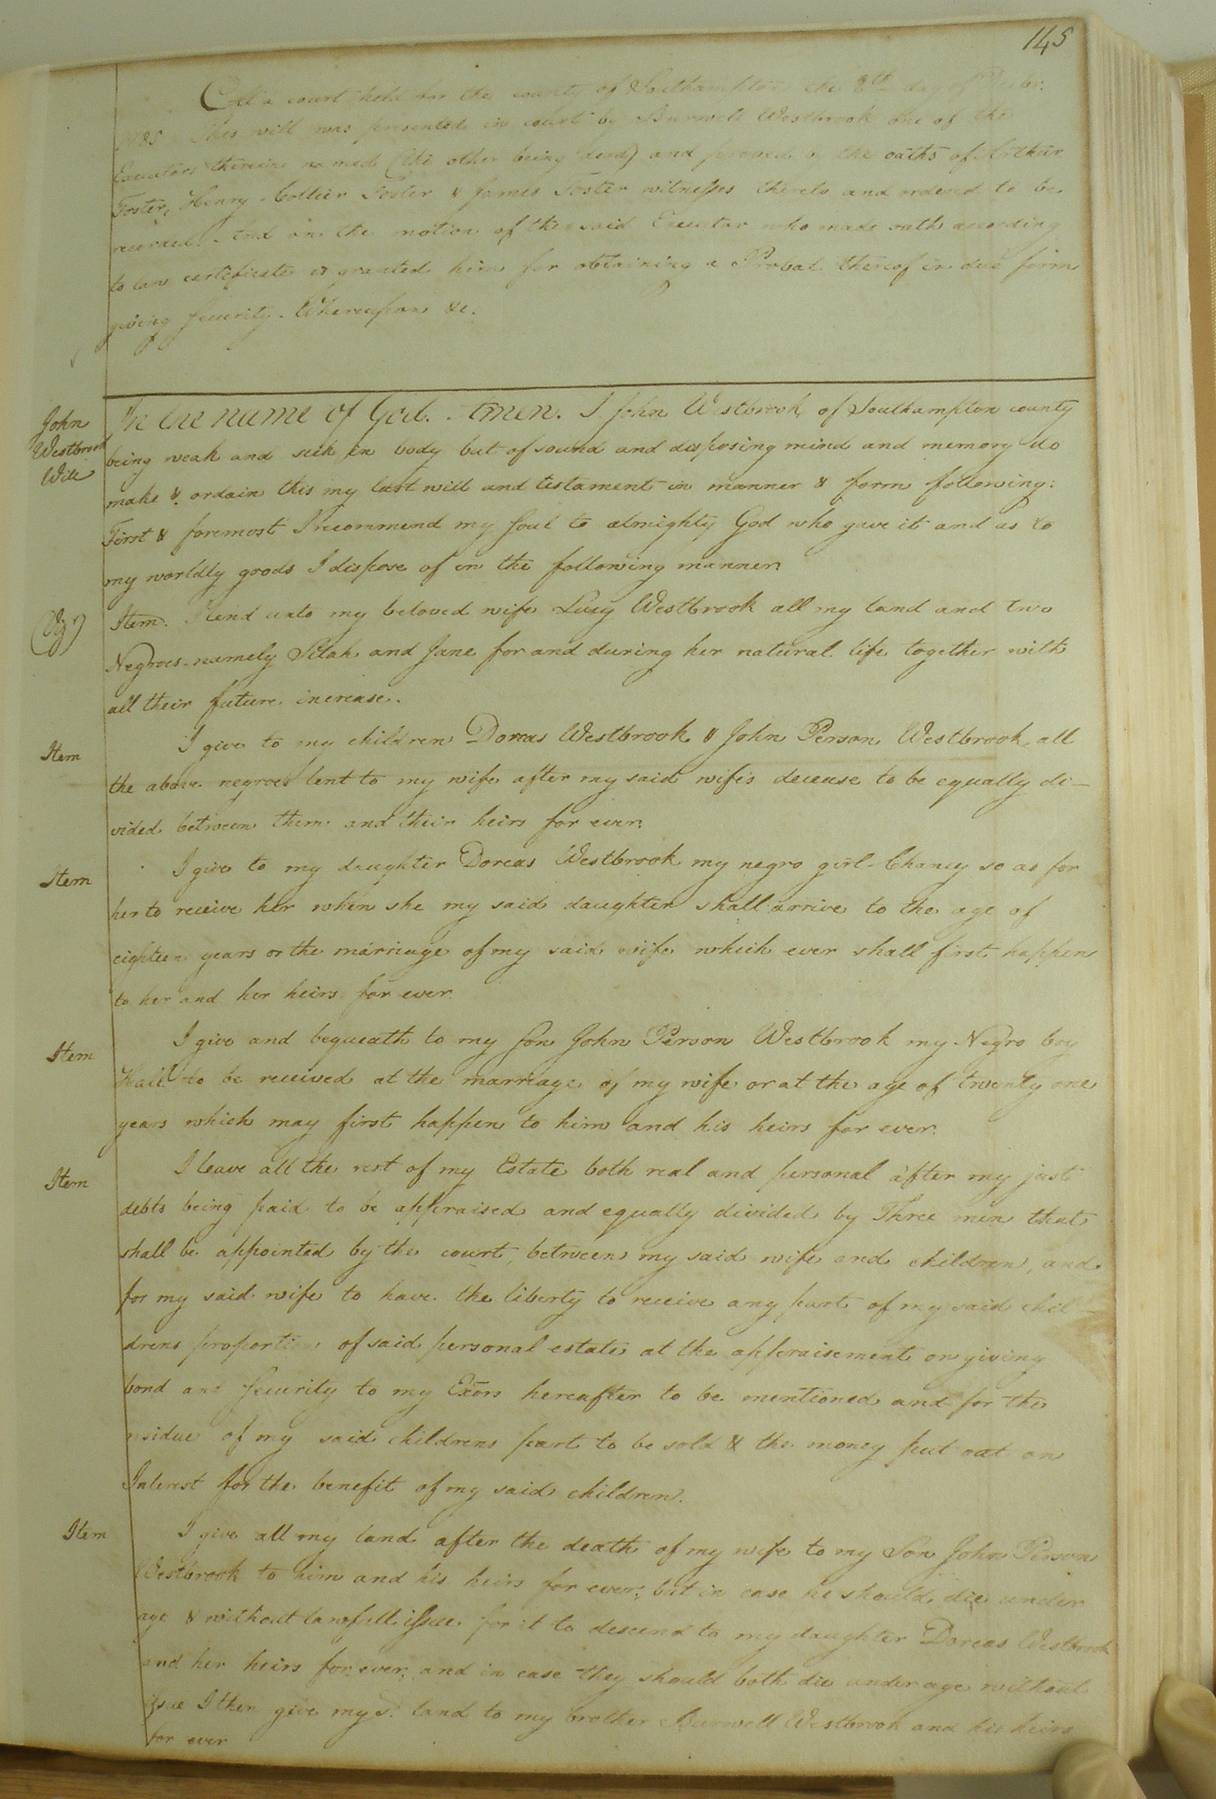 145
At a court held for the county of Southampton the 8th day of Decbr:
1785 This will was presented in court by Burwell Westbrook one of the
Executors therein named (the other being dead) and proved by the oaths of Arthur
Foster, Henry Collier Foster & James Foster witnesses thereto and ordered to be
recorded. And on the motion of the said Executor who made oath according
to law certificate is granted him for obtaining a Probat thereof in due form
giving security. Whereupon &c.
John
Westbrook
Will
In the name of God. Amen. I John Westbrook of Southampton county
being weak and sick in body but of sound and disposing mind and memory do
make & ordain this my last will and testament in manner & form following:
First & foremost I recommend my soul to almighty God who gave it and as to
my worldly goods I dispose of in the following manner
Item. I lend unto my beloved wife Lucy Westbrook all my land and two
Negroes namely and Jane for and during her natural life together with
all their future increase.
Item
I give to my children Dorcas Westbrook & John Person Westbrook all
the above negroes lent to my wife after my said wife's decease to be equally di-
vided between them and their heirs for ever.
Item
I give to my daughter Dorcas Westbrook my negro girl Chancy so as for
her to receive her when she my said daughter shall arrive to the age of
eighteen years or the marriage of my said wife which ever shall first happen
to her and her heirs for ever.
Item
I give and bequeath to my son John Person Westbrook my Negro boy
to be received at the marriage of my wife or at the age of twenty one
years which may first happen to him and his heirs for ever.
Item
I leave all the rest of my Estate both real and personal after my just
debts being paid to be appraised and equally divided by Three men that
shall be appointed by the court, between my said wife and children, and
for my said wife to have the liberty to receive any part of my said chil-
drens proportion of said personal estate at the appraisement on giving
bond and security to my Exors hereafter to be mentioned and for the
residue of my said childrens part to be sold & the money put out on
Interest for the benefit of my said children.
Item
I give all my land after the death of my wife to my Son John Person
Westbrook to him and his heirs for ever, but in case he should die under
age & without lawfull issue for it to descend to my daughter Dorcas Westbrook
and her heirs for ever, and in case they should both die under age without
Issue I then give my sd. land to my brother Burwell Westbrook and his heirs
for ever